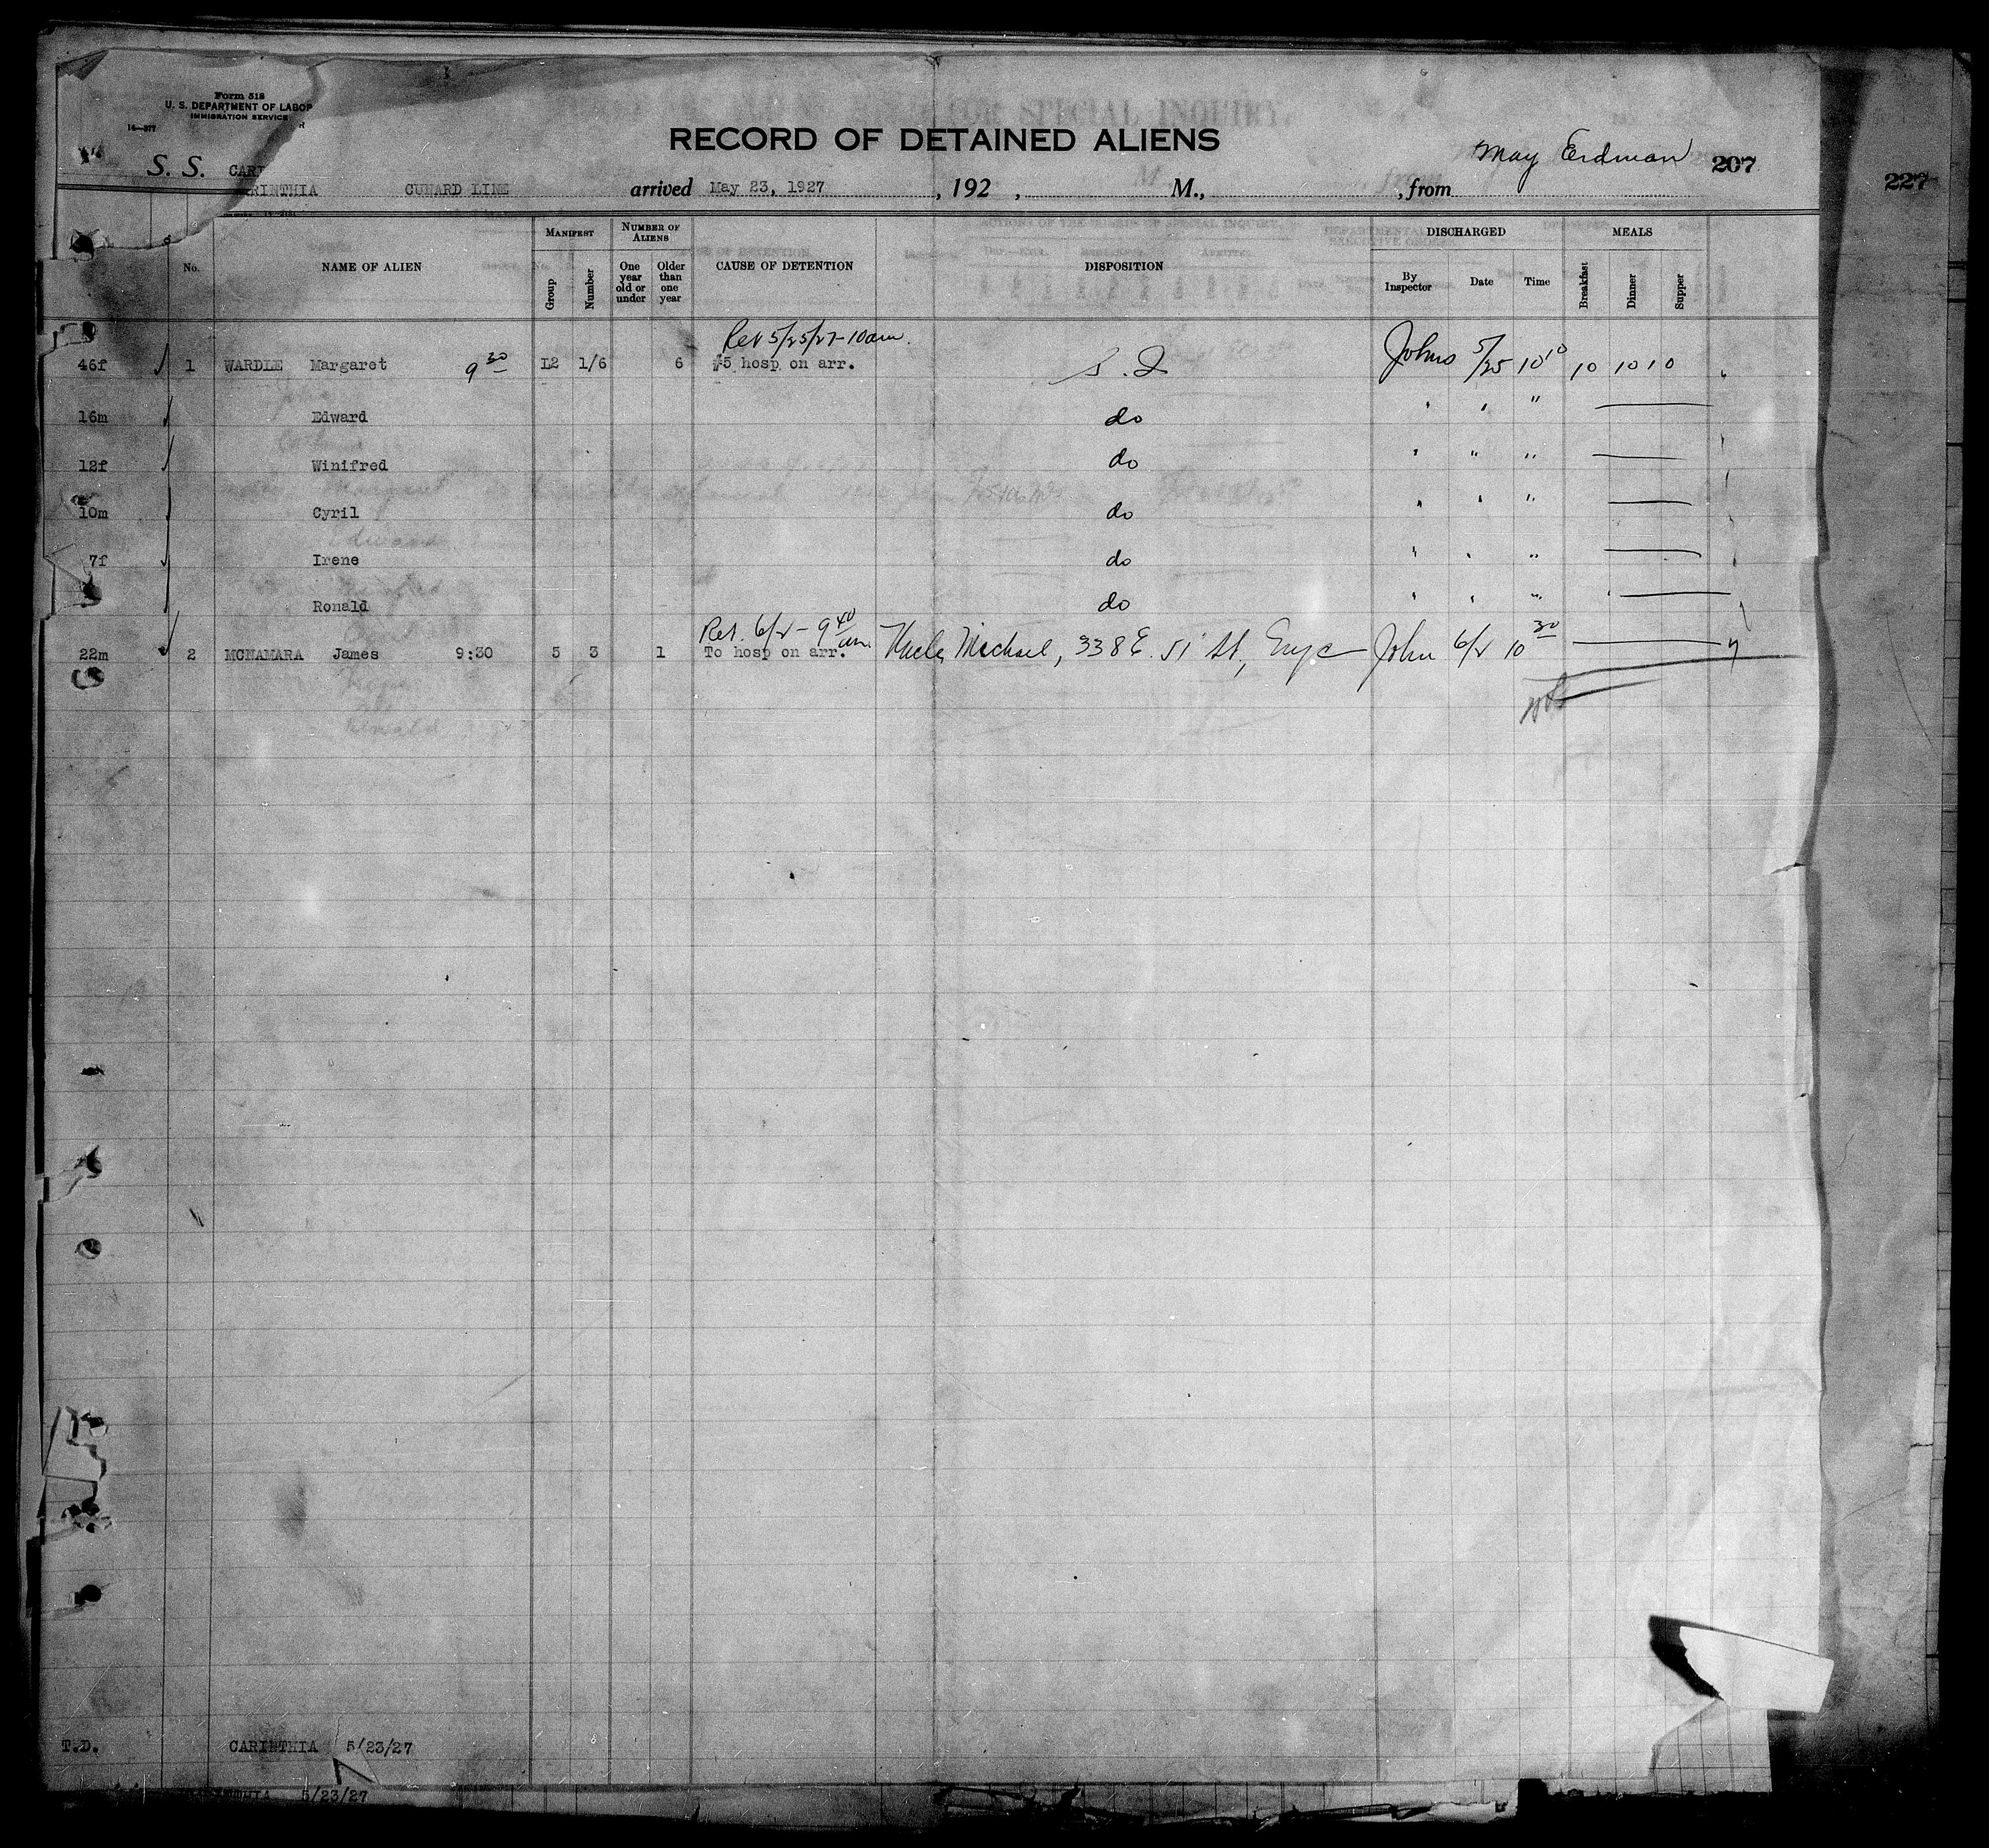 Form 518
U. S. DEPARTMENT OF LABOR
IMMIGRATION SERVICE
14—377
RECORD OF DETAINED ALIENS
May Erdman 207
227
S. S. CARI
RINTHIA CUNARD LINE arrived May 23, 1927, 192 , M., , from
No. NAME OF ALIEN MANIFEST Group Number NUMBER OF ALIENS One year old or under Older than one year CAUSE OF DETENTION DISPOSITION DISCHARGED By Inspector Date Time MEALS Breakfast Dinner Supper
Ret 5/25/27-10am.
46f 1 WARDLE Margaret 9 30 L2 1/6 6 hosp on arr. S.I Johns 5/25 10 10 10 10 10
16m Edward do " " "
12f Winifred do " " "
10m Cyril do " " "
7f Irene do " " "
Ronald do " " "
Ret. 6/2 - 9 40 am
22m 2 MCNAMARA James 9:30 5 3 1 To hosp on arr. Uncle, Michael, 338 E. 51 St, John 6/2 10 30
T.D. CARINTHIA 5/23/27
5/23/27